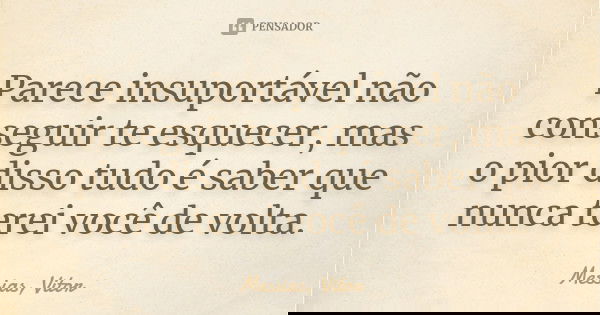 PENSADOR
Parece insuportável não
conseguir te esquecer, mas
o pior disso tudo é saber que
nunca terei você de volta.
Messias, Vitór